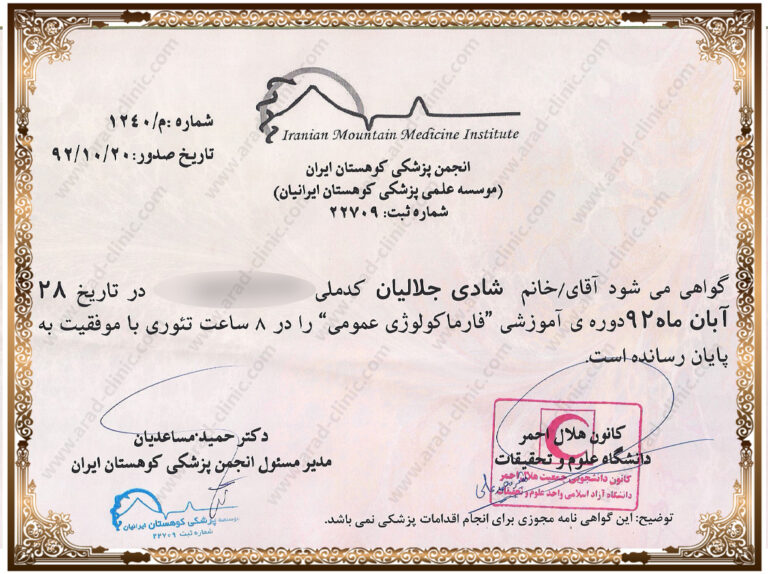 شماره :م/۱۲۴۰
تاریخ صدور:۹۲/۱۰/۲۰
Iranian Mountain Medicine Institute
انجمن پزشکی کوهستان ایران
(موسسه علمی پزشکی کوهستان ایرانیان)
شماره ثبت: ۲۲۷۰۹
گواهی می شود آقای/خانم شادی جلالیان کدملی در تاریخ ۲۸
آبان ماه۹۲دوره ی آموزشی "فارماکولوژی عمومی" را در ۸ ساعت تئوری با موفقیت به
پایان رسانده است.
کانون هلال احمر
دانشگاه علوم و تحقیقات
کانون دانشجویی جمعیت هلال احمر
دانشگاه آزاد اسلامی واحد علوم و تحقیقات
دکتر حمید مساعدیان
مدیر مسئول انجمن پزشکی کوهستان ایران
موسسه پزشکی کوهستان ایرانیان
شماره ثبت ۲۲۷۰۹
توضیح: این گواهی نامه مجوزی برای انجام اقدامات پزشکی نمی باشد.
www.arad-clinic.com